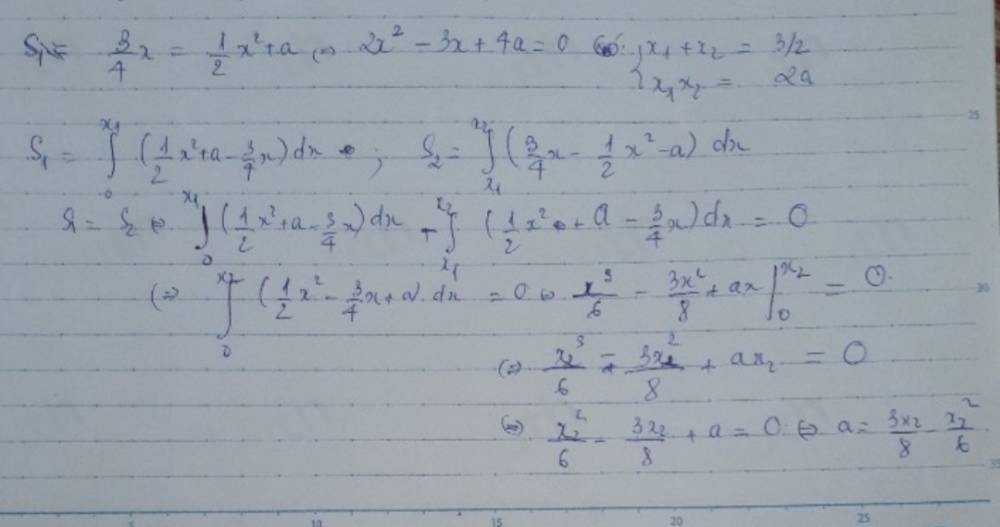 S₁ = 3/4 x = 1/2 x² + a ⇔ 2x² - 3x + 4a = 0 có: { x₁ + x₂ = 3/2
x₁x₂ = 2a
S₁ = ∫₀^{x₁} (1/2 x² + a - 3/4 x) dx ; S₂ = ∫_{x₁}^{x₂} (3/4 x - 1/2 x² - a) dx
S₁ = S₂ ⇔ ∫₀^{x₁} (1/2 x² + a - 3/4 x) dx + ∫_{x₁}^{x₂} (1/2 x² + a - 3/4 x) dx = 0
⇔ ∫₀^{x₂} (1/2 x² - 3/4 x + a) dx = 0 ⇔ x³/6 - 3x²/8 + ax |₀^{x₂} = 0
⇔ x₂³/6 - 3x₂²/8 + ax₂ = 0
⇔ x₂²/6 - 3x₂/8 + a = 0 ⇔ a = 3x₂/8 - x₂²/6
5 10 15 20 25
25
30
35